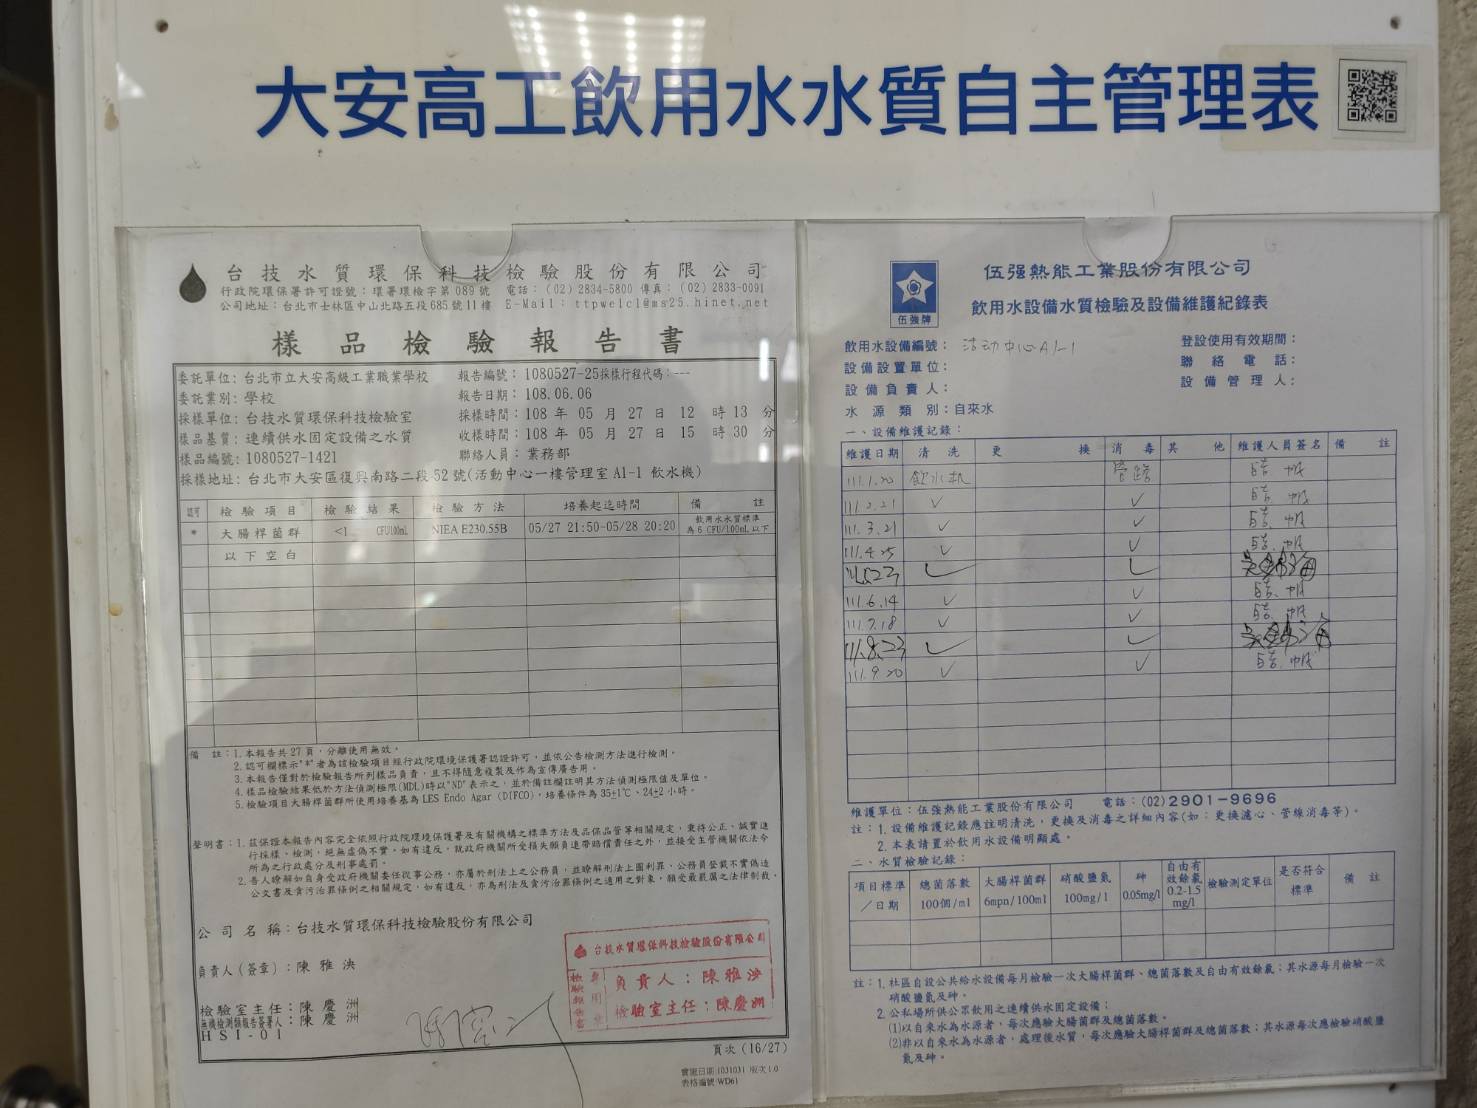 大安高工飲用水水質自主管理表
台技水質環保科技檢驗股份有限公司
行政院環保署許可證號：環署環檢字第 089 號 電話：(02) 2834-5800 傳真：(02) 2833-0091
公司地址：台北市士林區中山北路五段 685 號 11 樓 E-Mail：ttpwelcl@ms25.hinet.net
樣品檢驗報告書
委託單位：台北市立大安高級工業職業學校 報告編號：1080527-25採樣行程代碼：---
委託業別：學校 報告日期：108.06.06
採樣單位：台技水質環保科技檢驗室 採樣時間：108 年 05 月 27 日 12 時 13 分
樣品基質：連續供水固定設備之水質 收樣時間：108 年 05 月 27 日 15 時 30 分
樣品編號：1080527-1421 聯絡人員：業務部
採樣地址：台北市大安區復興南路二段 52 號(活動中心一樓管理室 A1-1 飲水機)
認可 檢驗項目 檢驗結果 檢驗方法 培養起迄時間 備註
* 大腸桿菌群 <1 CFU/100mL NIEA E230.55B 05/27 21:50-05/28 20:20 飲用水水質標準
為 6 CFU/100mL 以下
以下空白
備 註：1.本報告共 27 頁，分離使用無效。
2.認可欄標示"*"者為該檢驗項目經行政院環境保護署認證許可，並依公告檢測方法進行檢測。
3.本報告僅對於檢驗報告所列樣品負責，且不得隨意複製及作為宣傳廣告用。
4.樣品檢驗結果低於方法偵測極限(MDL)時以"ND"表示之，並於備註欄註明其方法偵測極限值及單位。
5.檢驗項目大腸桿菌群所使用培養基為 LES Endo Agar (DIFCO)，培養條件為 35±1℃、24±2 小時。
聲明書：1.茲保證本報告內容完全依照行政院環境保護署及有關機構之標準方法及品保品管等相關規定，秉持公正、誠實進
行採樣、檢測，絕無虛偽不實。如有違反，就政府機關所受損失願負連帶賠償責任之外，並接受主管機關依法令
所為之行政處分及刑事處罰。
2.吾人瞭解如自身受政府機關委任從事公務，亦屬於刑法上之公務員，並瞭解刑法上圖利罪、公務員登載不實偽造
公文書及貪污治罪條例之相關規定，如有違反，亦為刑法及貪污治罪條例之適用之對象，願受最嚴厲之法律制裁。
公司名稱：台技水質環保科技檢驗股份有限公司
負責人(簽章)：陳雅泱
檢驗室主任：陳慶洲
無機檢測類報告簽署人：陳慶洲
HSI-01
台技水質環保科技檢驗股份有限公司
檢驗報告書
專用章
負責人：陳雅泱
檢驗室主任：陳慶洲
頁次 (16/27)
實施日期 1031031 版次 1.0
表格編號 WD61
伍強牌
伍强熱能工業股份有限公司
飲用水設備水質檢驗及設備維護紀錄表
飲用水設備編號：活动中心A1-1 登設使用有效期間：
設備設置單位： 聯絡電話：
設備負責人： 設備管理人：
水源類別：自來水
一、設備維護記錄：
維護日期 清洗 更換 消毒 其他 維護人員簽名 備註
111.1.20 飲水机 管路
111.2.21 ✓ ✓
111.3.21 ✓ ✓
111.4.25 ✓ ✓
111.5.23 ✓ ✓
111.6.14 ✓ ✓
111.7.18 ✓ ✓
111.8.23 ✓ ✓
111.9.20 ✓ ✓
維護單位：伍强熱能工業股份有限公司 電話：(02)2901-9696
註：1.設備維護記錄應註明清洗，更換及消毒之詳細內容(如：更換濾心、管線消毒等)。
2.本表請置於飲用水設備明顯處。
二、水質檢驗記錄：
項目標準／日期 總菌落數 100個/ml 大腸桿菌群 6mpn/100ml 硝酸鹽氮 100mg/l 砷 0.05mg/l 自由有效餘氯 0.2-1.5 mg/l 檢驗測定單位 是否符合標準 備註
註：1.社區自設公共給水設備每月檢驗一次大腸桿菌群、總菌落數及自由有效餘氯；其水源每月檢驗一次
硝酸鹽氮及砷。
2.公私場所供公眾飲用之連續供水固定設備：
(1)以自來水為水源者，每次應驗大腸菌群及總菌落數。
(2)非以自來水為水源者，處理後水質，每次應驗大腸桿菌群及總菌落數；其水源每次應檢驗硝酸鹽
氮及砷。